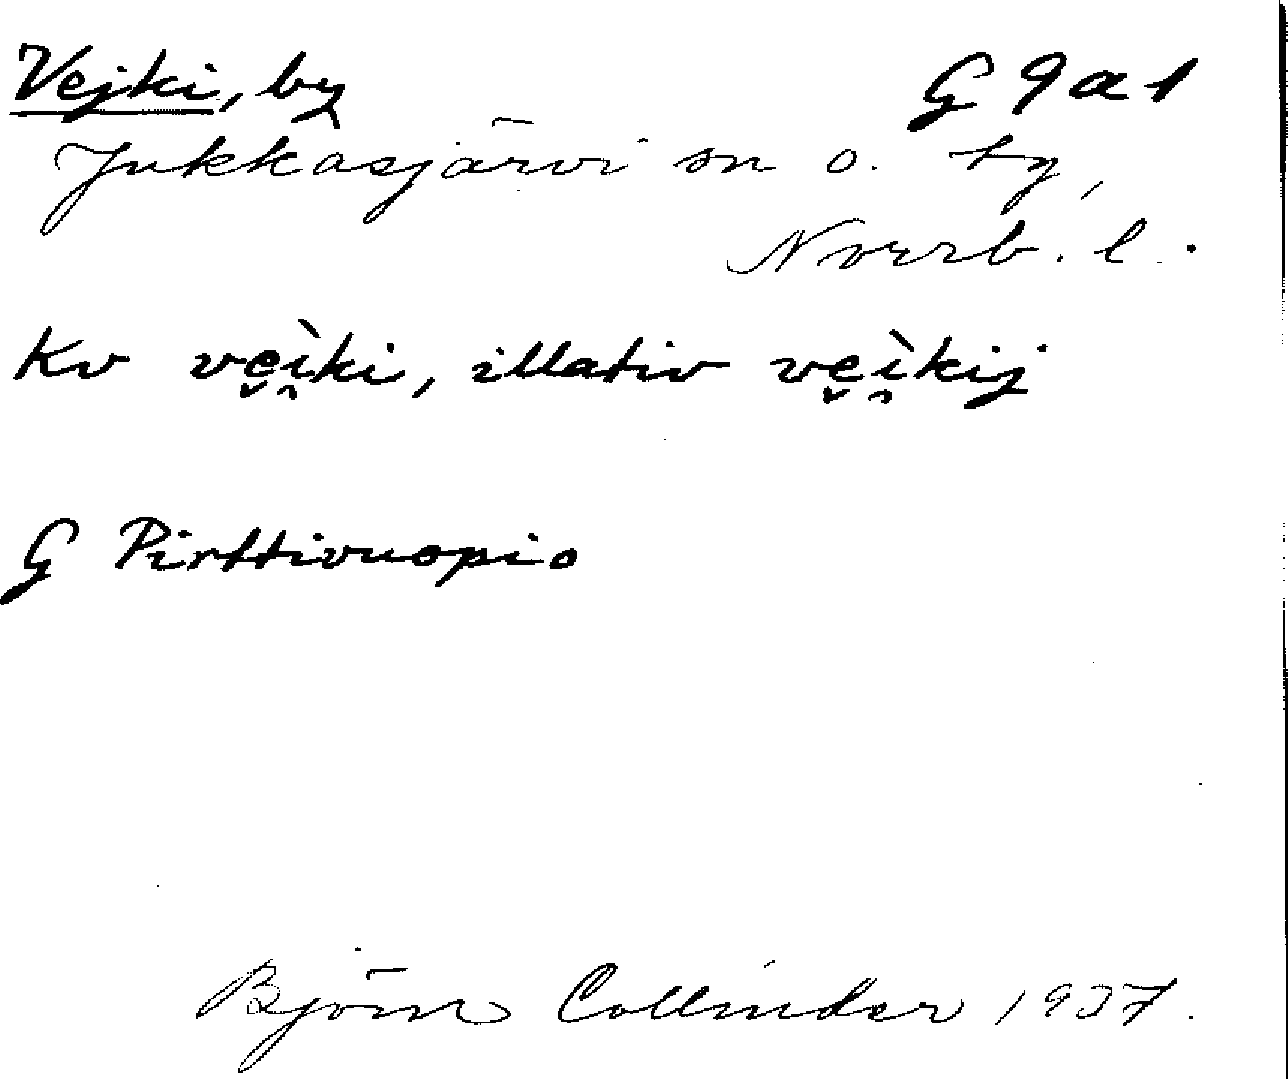 Vejki, by G 9 a 1
Jukkasjärvi sn o. tg,
Norrb. l.
Kv ve̬ì̯ki, illativ ve̬ì̯kij
G Pirttivuopio
Björn Collinder 1937.